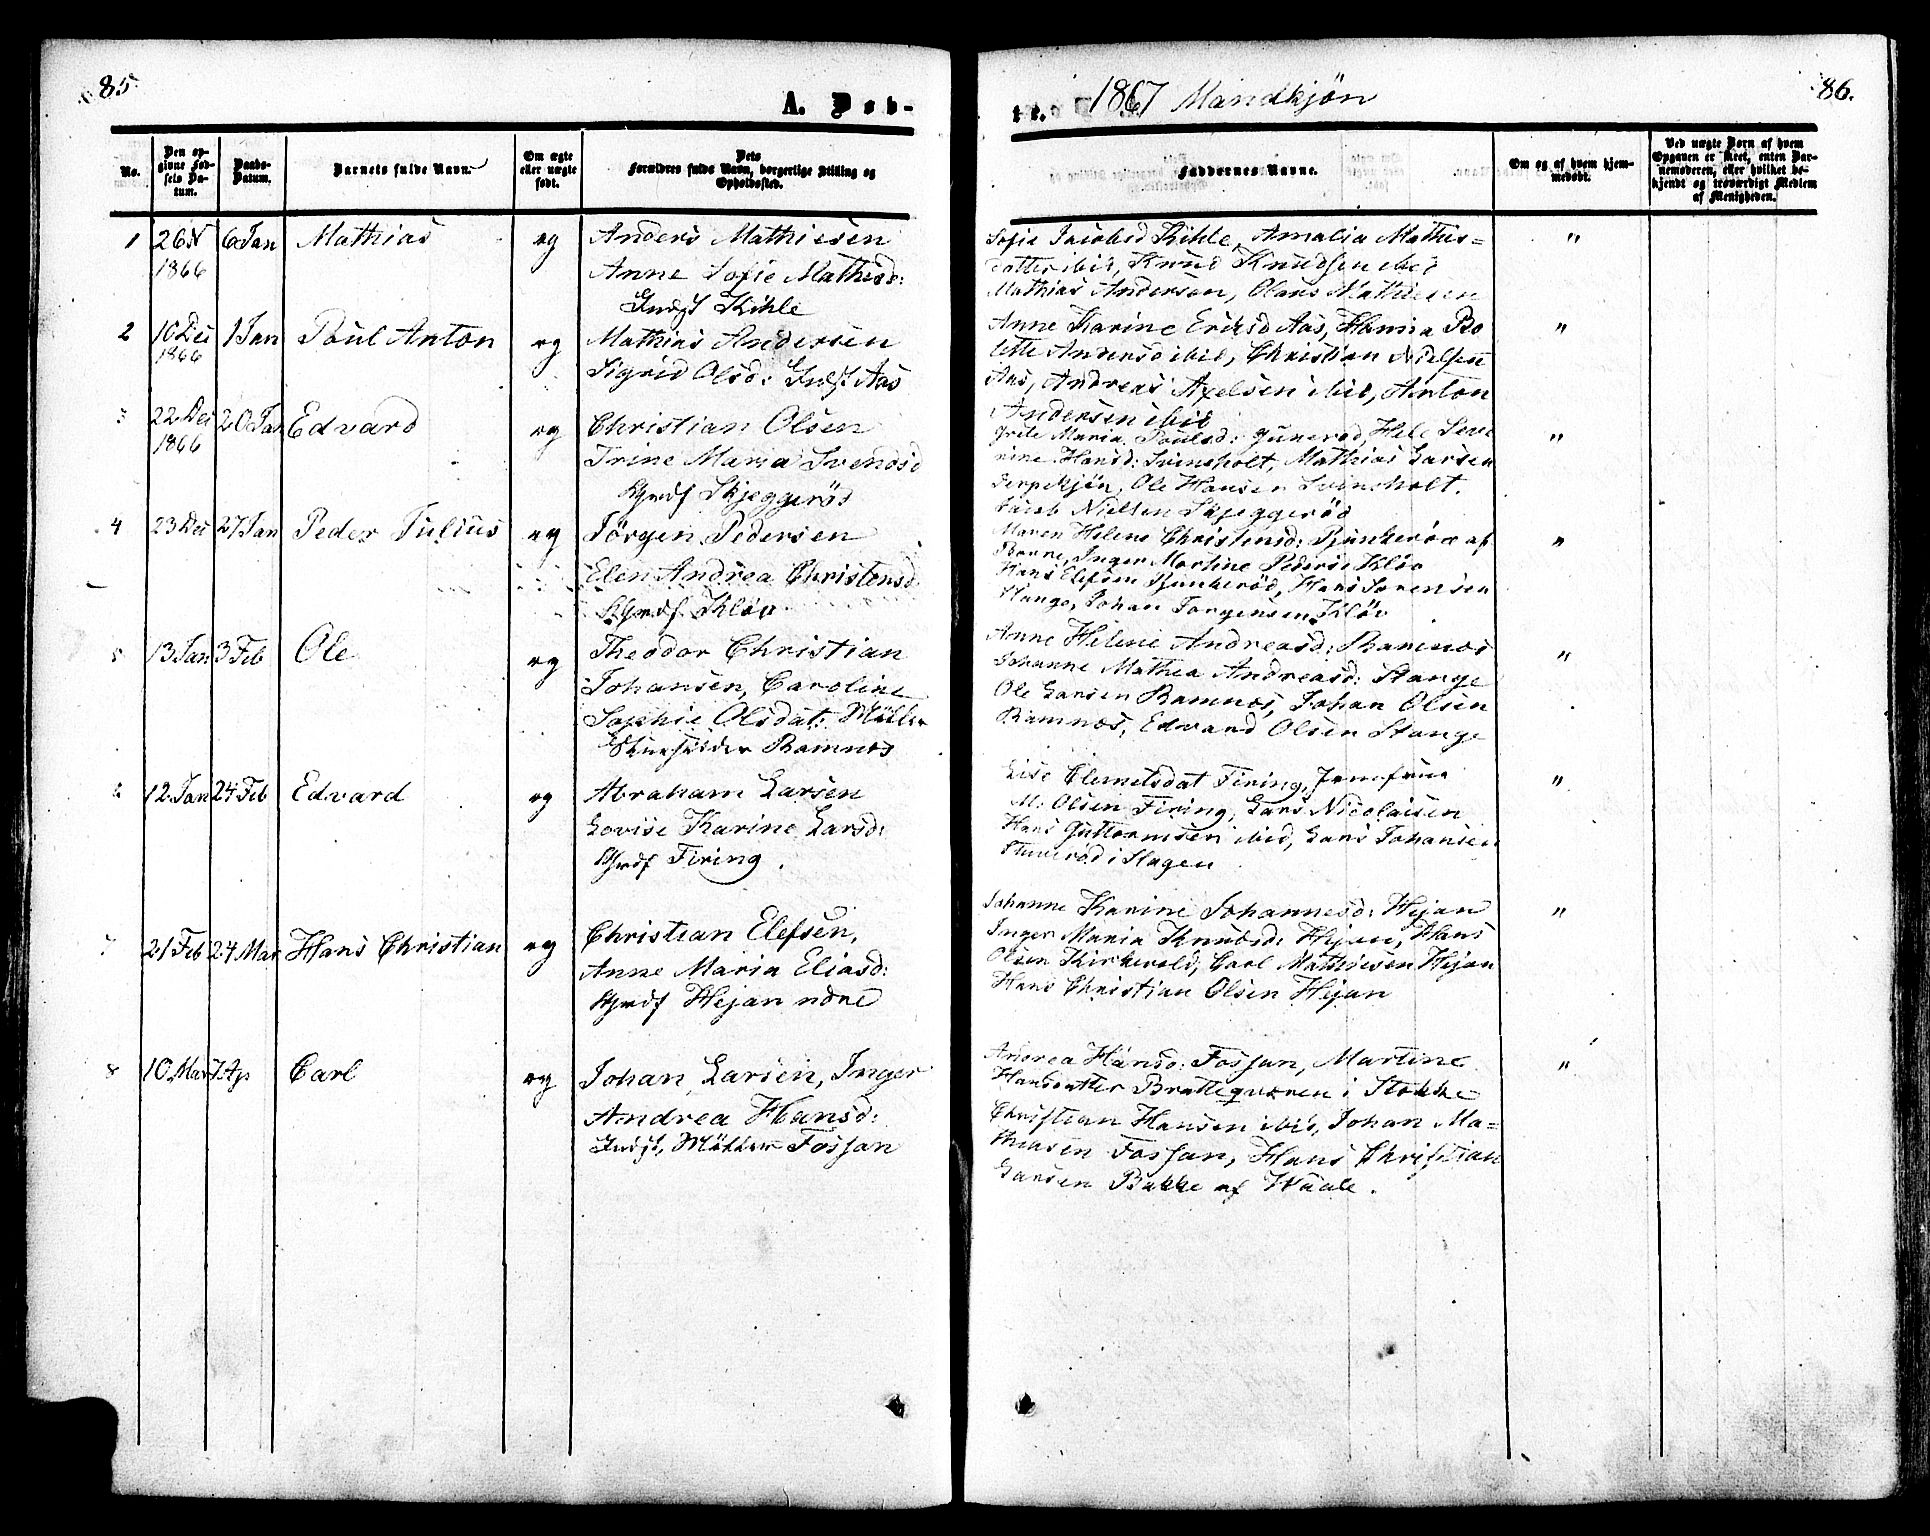 85.
A. Døb-
No.
Den op-
givne Fød-
sels Da-
tum.
Daabs-
Datum.
Barnets fulde Navn.
Om ægte
eller uægte
født.
Dets
Forældres fulde Navn, borgerlige Stilling og
Opholdssted.
1 26 N 6 Jan Mathias eg Anders Mathiesen
1866 Anne Sofie Mathisd:
Indst Kihle
2 10 Dec 1 Jan Poul Anton eg Mathias Andersen
1866
Sigrid Olsd: Indst Aas
3 22 Dec 20 Jan Edvard eg Christian Olsen
1866
Trine Maria Svendsd
Skjeggerød
4 23 Dec 27 Jan Peder Julius eg Jørgen Pedersen
Elen Andrea Christensd
Kløv
5 13 Jan 3 Feb Ole eg Theodor Christian
Johansen, Caroline
Sophie Olsdat: Møller
Ramnæs
6 12 Jan 24 Feb Edvard eg Abraham Larsen
Lovise Karine Larsd:
Firing.
7 21 Feb 24 Mar Hans Christian eg Christian Elefsen,
Anne Maria Eliasd:
Hejan ndre
8 10 Mar 7 Ap Carl eg Johan Larsen, Inger
Andrea Hansd:
Indst, Møller Fossan
te. 1867 Mandkjøn
86.
Faddernes Navne.
Om og af hvem hjem-
medøbt.
Ved uægte Børn af hvem
Opgaven er skeet, enten Bar-
nemoderen, eller hvilket be-
kjendt og troværdigt Medlem
af Menigheden.
Sofie Jacobsd Kihle, Amalia Mathis= "
datter ibid, Knud Knudsen ibid
Mathias Andersen, Olaus Mathiesen
Anne Karine Eriksd Aas, Hanna Bo "
lette Andersd ibid, Christian Nielsen
Aas, Andreas Axelsen ibid, Anton
Andersen ibid
Grete Maria Poulsd: Gunerød, Hele Seve "
rine Hansd: Svinsholt, Mathias Larsen
Ole Hansen Svinsholt.
Jacob Nielsen Skjeggerød
Maren Helene Christensd: af "
Borre, Inger Martine Pedersd Kløv
Hans Elefsen Hans Sørensen
Stange, Johan Jørgensen Kløv
Anne Helene Andreasd: Ramnæs "
Johanne Mathea Andreasd: Stange
Ole Larsen Ramnæs, Johan Olsen
Ramnæs, Edvard Olsen Stange
Lise Clemetsdat Firing, Jomfrue "
M: Olsen Firing, Lars Nicolaisen
Hans Guttormsen ibid, Lars Johansen
i Slagen
Johanne Karine Johannesd: Hejan "
Inger Maria Knudsd: Hejan, Hans
Olsen Kirkevold, Carl Mathiesen Hejan
Hans Christian Olsen Hejan
Andrea Hansd: Fossan, Martine "
Hansdatter Brattequæren i Stokke
Christian Hansen ibid, Johan Ma=
thiasen Fossan, Hans Christian
Larsen Bakke af Waale.